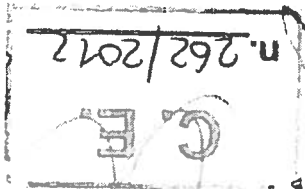 C. E.
n. 262/2012